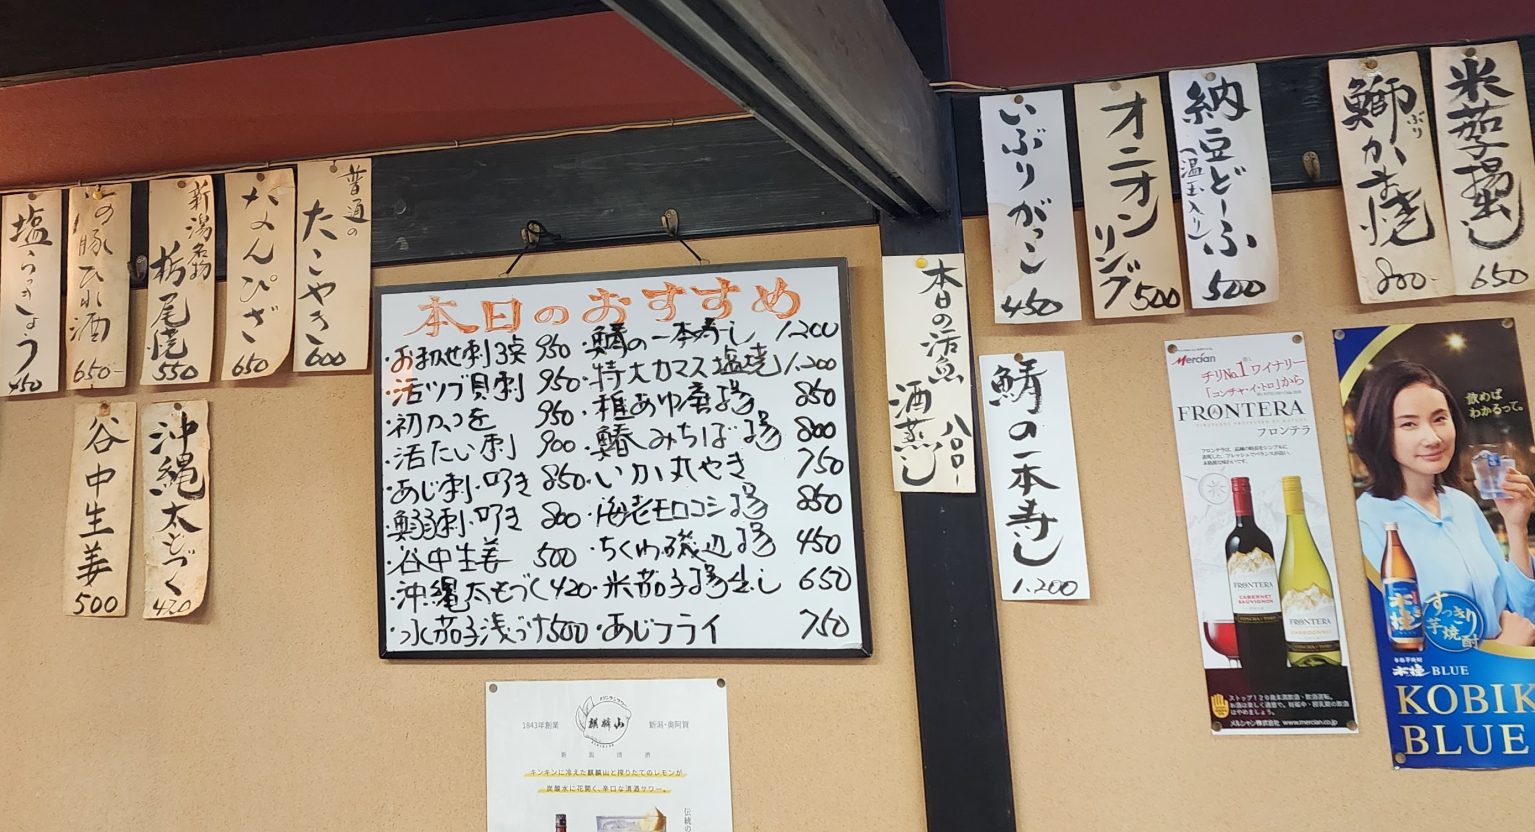 塩らっきょう
450
の豚ひれ酒
650-
新潟名物
栃尾焼
550
なんぴざ
650
普通の
たこやき
600
谷中生姜
500
沖縄太もづく
420
本日のおすすめ
・おまかせ刺3点 950
・活ツブ貝刺 950
・初かつを 950
・活たい刺 900
・あじ刺・叩き 850
・鰯刺・叩き 800
・谷中生姜 500
・沖縄太もづく 420
・水茄子浅づけ 500
・鯖の一本寿し 1.200
・特大カマス塩焼 1.200
・稚あゆ唐揚 850
・鰆みちば揚 800
・いか丸やき 750
・海老モロコシ揚 850
・ちくわ磯辺揚 450
・米茄子揚出し 650
・あじフライ 750
本日の活魚
酒蒸し
八〇〇-
いぶりがっこ
450
オニオン
リング
500
納豆どーふ
(温玉入り)
500
鰤かま焼
ぶり
800-
米茄子揚出し
650
鯖の一本寿し
1.200
Mercian
チリNo.1ワイナリー
「コンチャ・イ・トロ」から
FRONTERA
フロンテラ
FRONTERA
CABERNET SAUVIGNON
FRONTERA
CHARDONNAY
ストップ!20歳未満飲酒・飲酒運転。
メルシャン株式会社 www.mercian.co.jp
飲めば
わかるって。
すっきり
芋焼酎
本格芋焼酎
木挽 BLUE
KOBIK
BLUE
1843年創業
麒麟山
新潟・奥阿賀
新潟清酒
キンキンに冷えた麒麟山と搾りたてのレモンが
炭酸水に花開く、辛口な清酒サワー。
伝統の